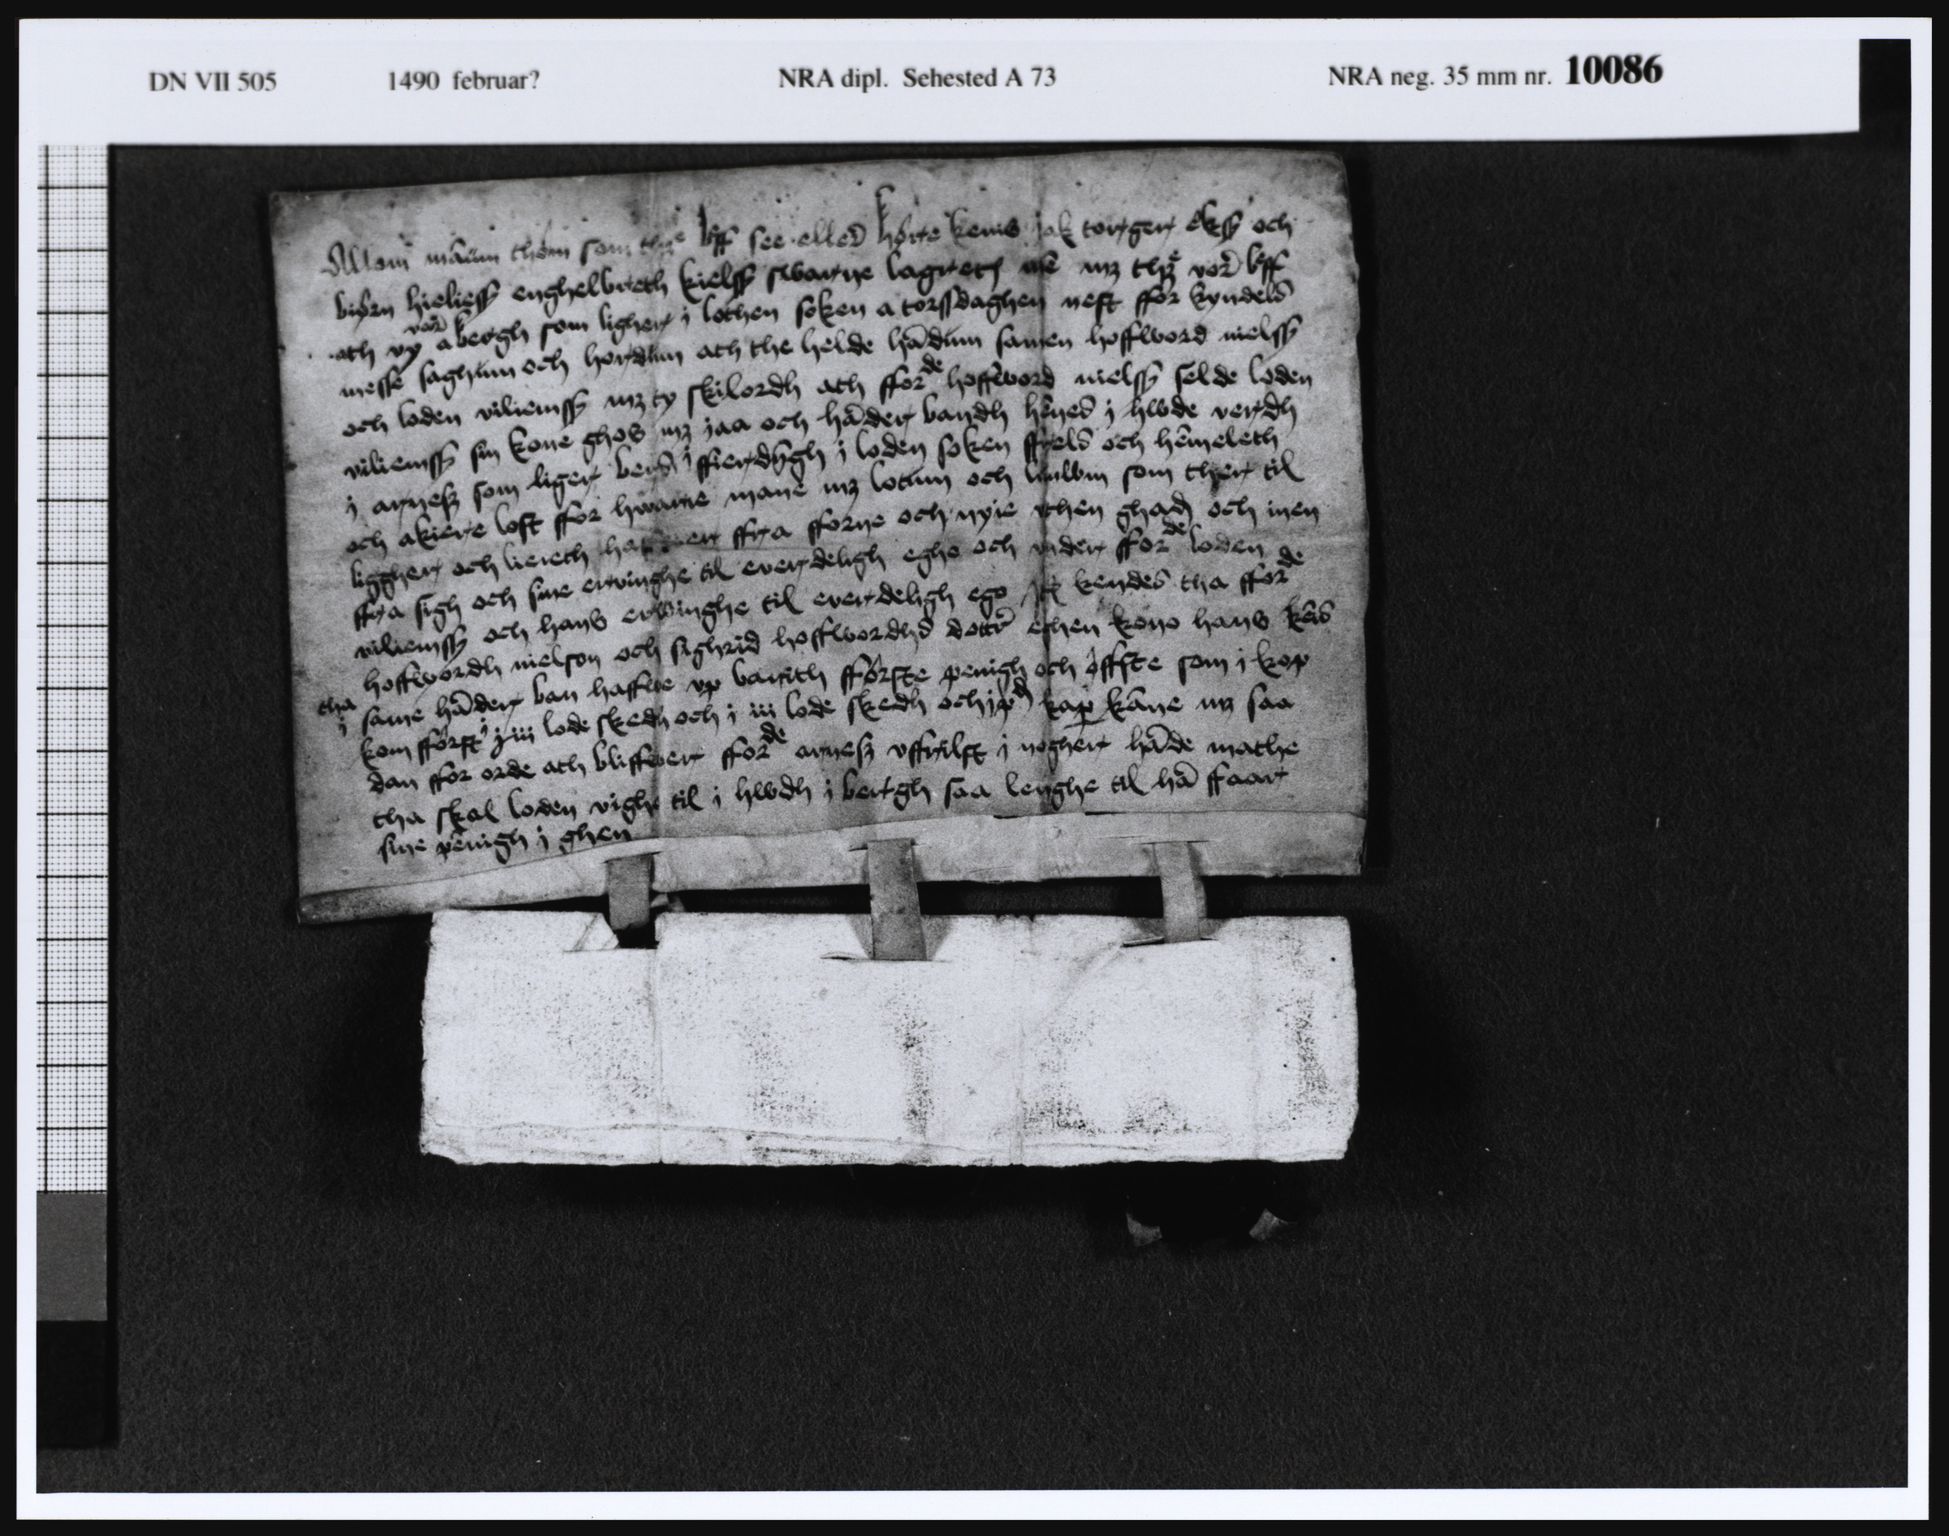 DN VII 505 1490 februar? NRA dipl. Sehested A 73 NRA neg. 35 mm nr. 10086
Allom mānnum thøm som thᵗᵗe bff see elleꝛ høre kenis jak torger ekss och
biørn hieliess enghelbreth kielss swarne lagret mē mꝫ thꝫ̄ vor̄ bff
ath vy vaꝛ a bergh som ligher i lothen soken a torssdaghen nest ffor kyndels
messe saghum och hordum ath the helde hādum samen hoffword nielss
och loden viliemss mꝫ ty skilordh ath fforᵈᵉ hoffword nielss selde loden
viliemss sin kone ghos mꝫ jaa och hāder bandh hēnes i hwde verdh
i arnes som liger i ffierdūgh i loden soken ffrels och hēmeleth
och akiere løst ffor hwarie mane mꝫ lotum och lunwm som ther til
liggher och lieꝛeth haffuer ffra fforne och nyie vthen ghadꝫ och inen
ffra sigh och sine ervinghe til everdeligh egho och vnder fforᵈᵉ loden
viliemss och hans erwinghe til everdeligh ego Jtꝫ kendes tha fforᵈᵉ
hoffwordh nielson och sighrid hoffwordhs dotꝛ ethen kono hans kēs
tha i same hāder ban haffwe vp barith fførste penigh och øffste som i køp
kom fførst iiii lode skedh och i iii lode skedh och i pᵈ kap kāne mꝫ saa
dan ffor orde ath bliffwer fforᵈᵉ arnes vffrilst i nogher hāde mathe
tha skal loden vighe til i hwdh i bergh saa lenghe til hā ffaar
sine pēnigh i ghen